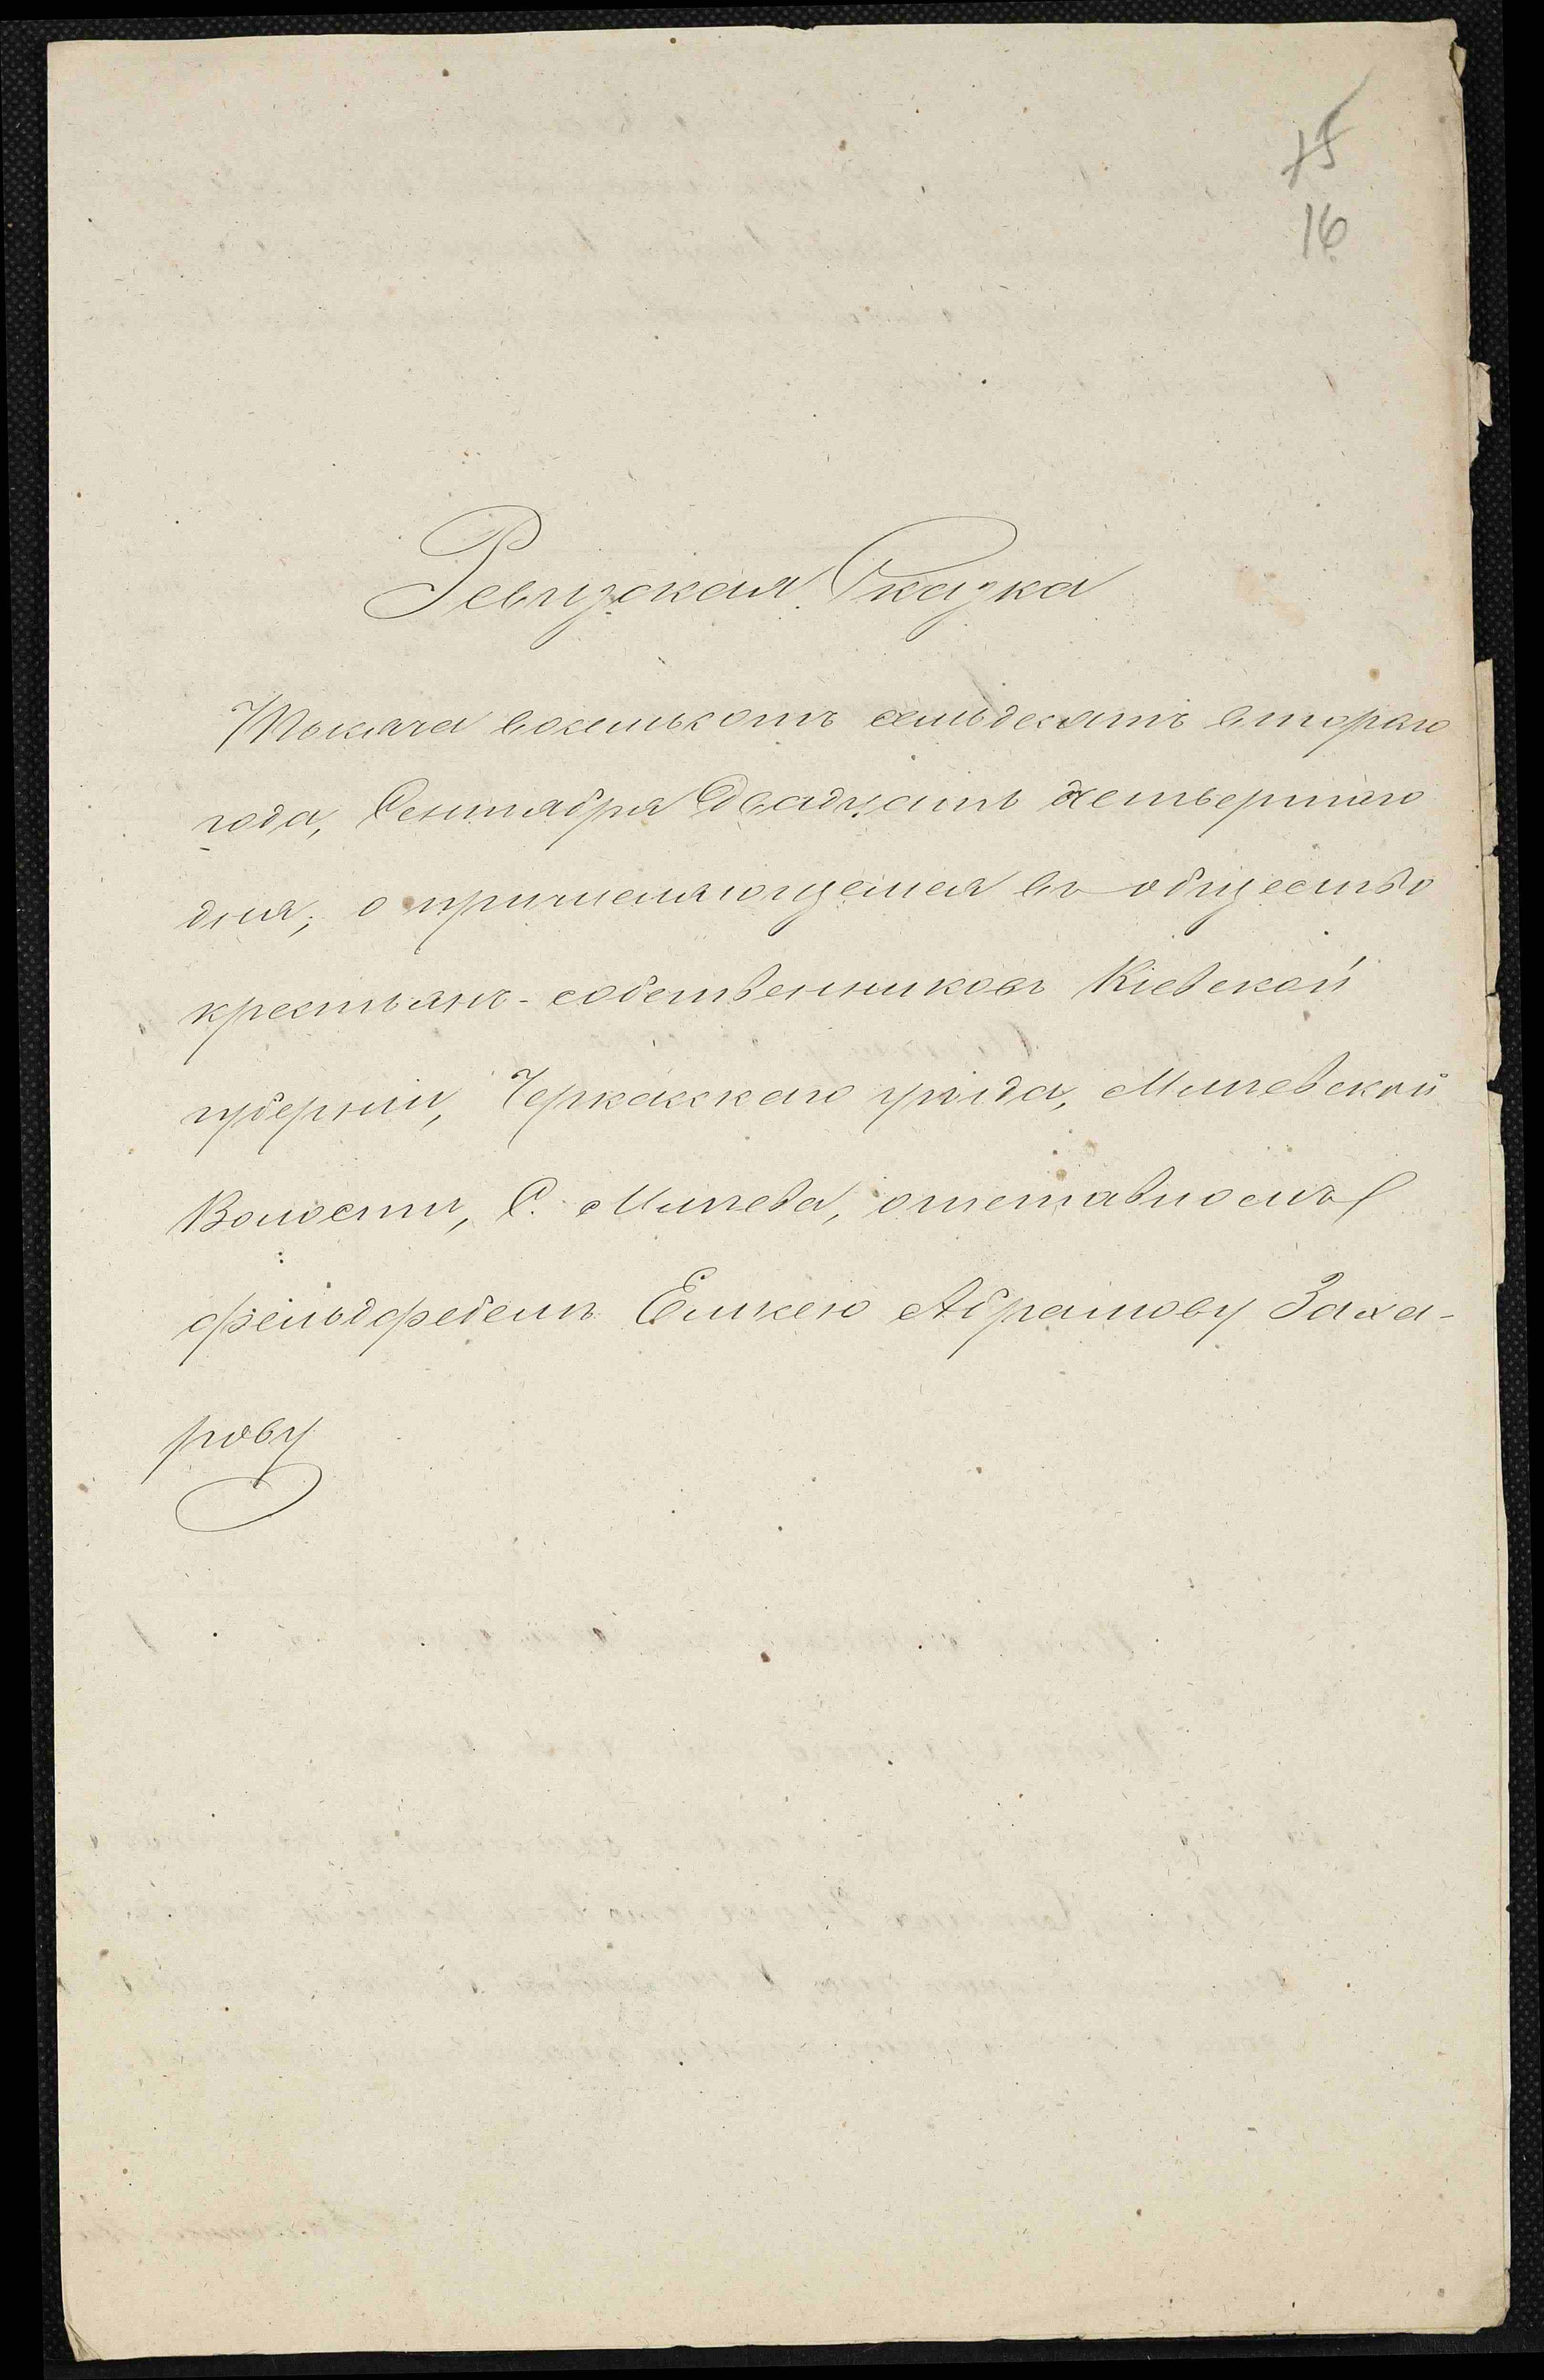 15
16
Ревизская Сказка
Тысяча восемьсотъ семьдесятъ втораго
года, Сентября двадцать четвертаго
дня, о причисляющемся въ общество
крестьянъ-собственниковъ Кіевской
губерніи, Черкасскаго уѣзда, Мліевской
Волости, С. Мліева, отставномъ
фельдфебелѣ Елисею Абрамову Заха-
рову